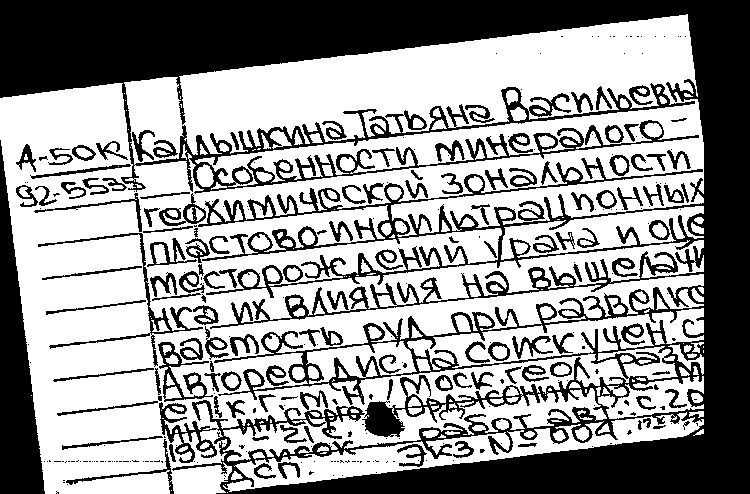 А-50К Калмышкина, Татьяна Васильевна
92-5535 Особенности минералого-
геохимической зональности
пластово-инфильтрационных
месторождений урана и оце
нка их влияния на выщелачи
ваемость руд при разведке
Автореф. дис. на соиск. учен. с
еп. к. г.-м. н. / Моск. геол. разве
ин-т им. Серго Орджоникидзе. - М
1992. - 21 с.
список работ авт.: с. 20
ДСП. Экз. № 004.